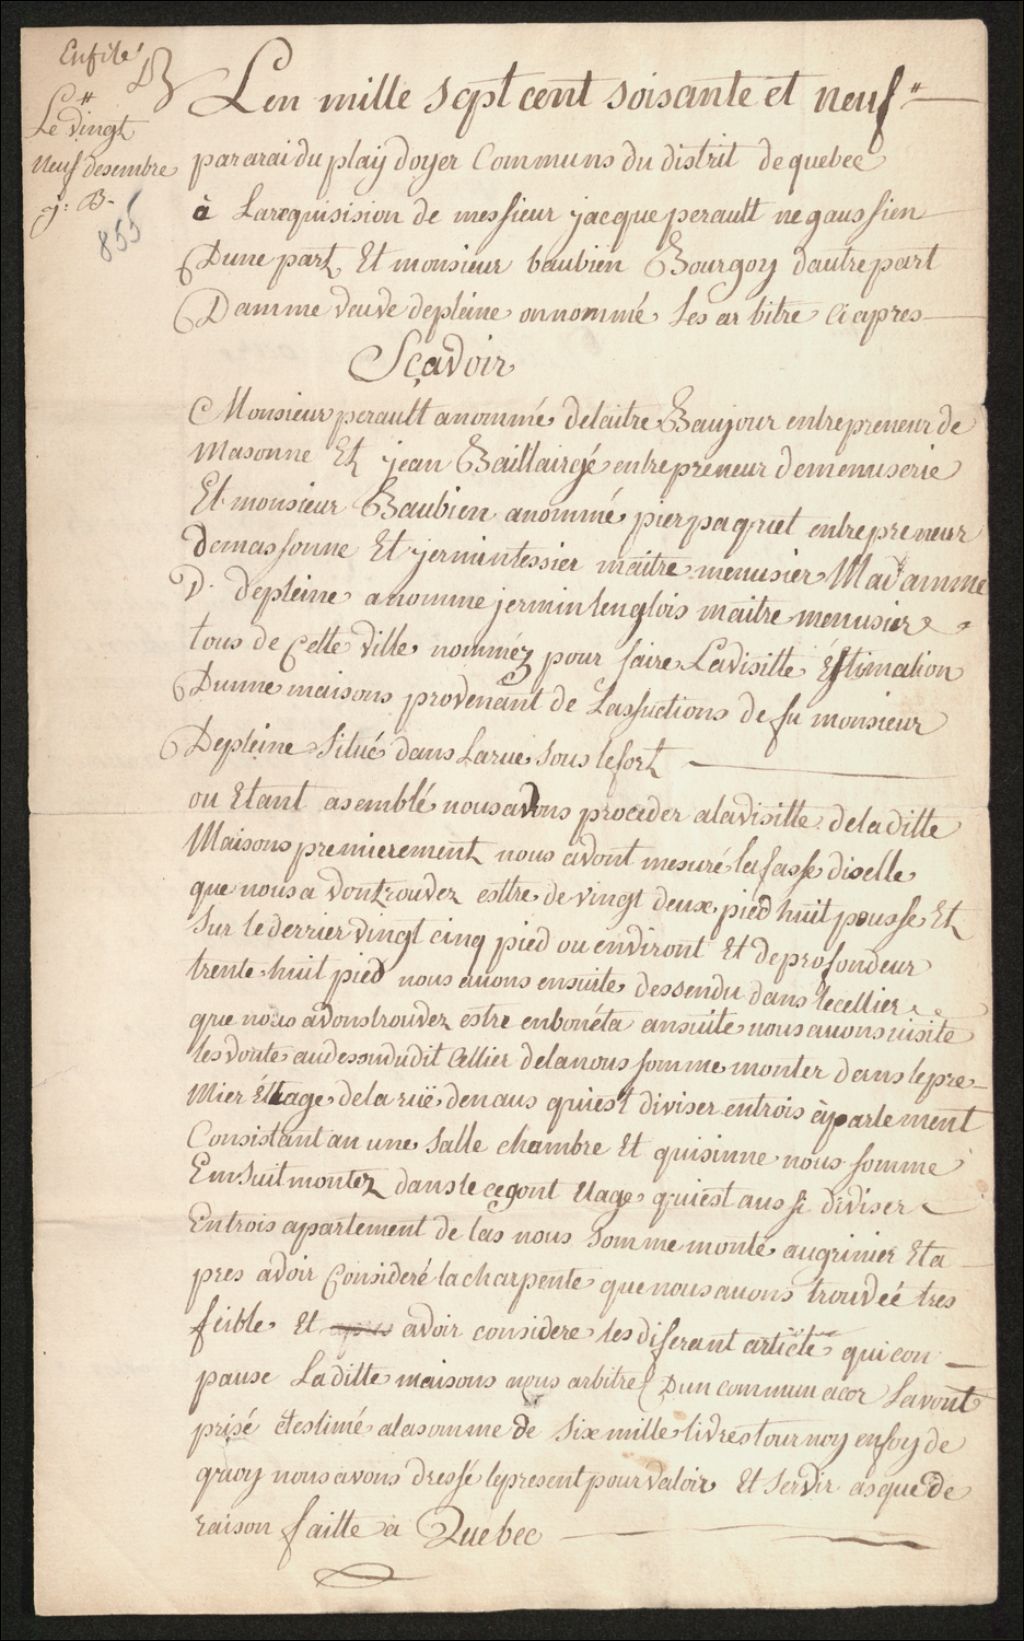 Enfilé
Le vingt
neuf desembre
j: B.
855
Len mille sept cent soisante et neuf
par arai du play doyer Communs du distrit de quebec
à Larequisision de messieur jacque perault negaussien
Dune part Et monsieur baubien Bourgoy dautre part
Damme veuve depleine onnommé Les arbitre Ci apres
Sçavoir
Monsieur perault anommé delaitre Baujour entrepreneur de
Masonne Et jean Baillairgé entrepreneur demenuserie
Et monsieur Baubien anommé pierpaquet entrepreneur
demassonne Et jermintessier maitre menusier Madamme
D. depleine anomme jerminlenglois maitre menusier
tous de Cette ville nomméz pour faire Lavisitte Estimation
Dunne maisons provenant de Lassuctions de fu monsieur
Depleine Situé dans Larue sous lefort
ou Etant asemblé nousavons proceder alavisitte deladitte
Maisons premierement nous avont mesuré lafasse diselle
que nous avontrouvez esttre de vingt deux pied huit pousse Et
sur lederrier vingt cinq pied ou environt Et deprofondeur
trente huit pied nous avons ensuite dessendu dans lecellier
que nous avonstrouvez estre enbonéta ansuite nous avons visité
lesvoute audesududit Cellier delanous somme monter dans lepre
Mier Ettage dela ruë denaus quiest diviser entrois àpartement
Consistant an une Salle chambre Et quisinne nous somme
Ensuit montez dansle cegont Etage quiest aussi diviser
Entrois apartement de las nous Somme monté augrinier Et a
pres avoir Consideré lacharpente que nous avons trouveé tres
feible Et apres avoir considere les diferant articte qui con
pause Laditte maisons nous arbitre Dun commun acor Lavont
prisé étestimé alasomme de six mille livrestournoy enfoy de
quoy nous avons dressé lepresent pour valoir Et servir asque de
raison faitte à Quebec